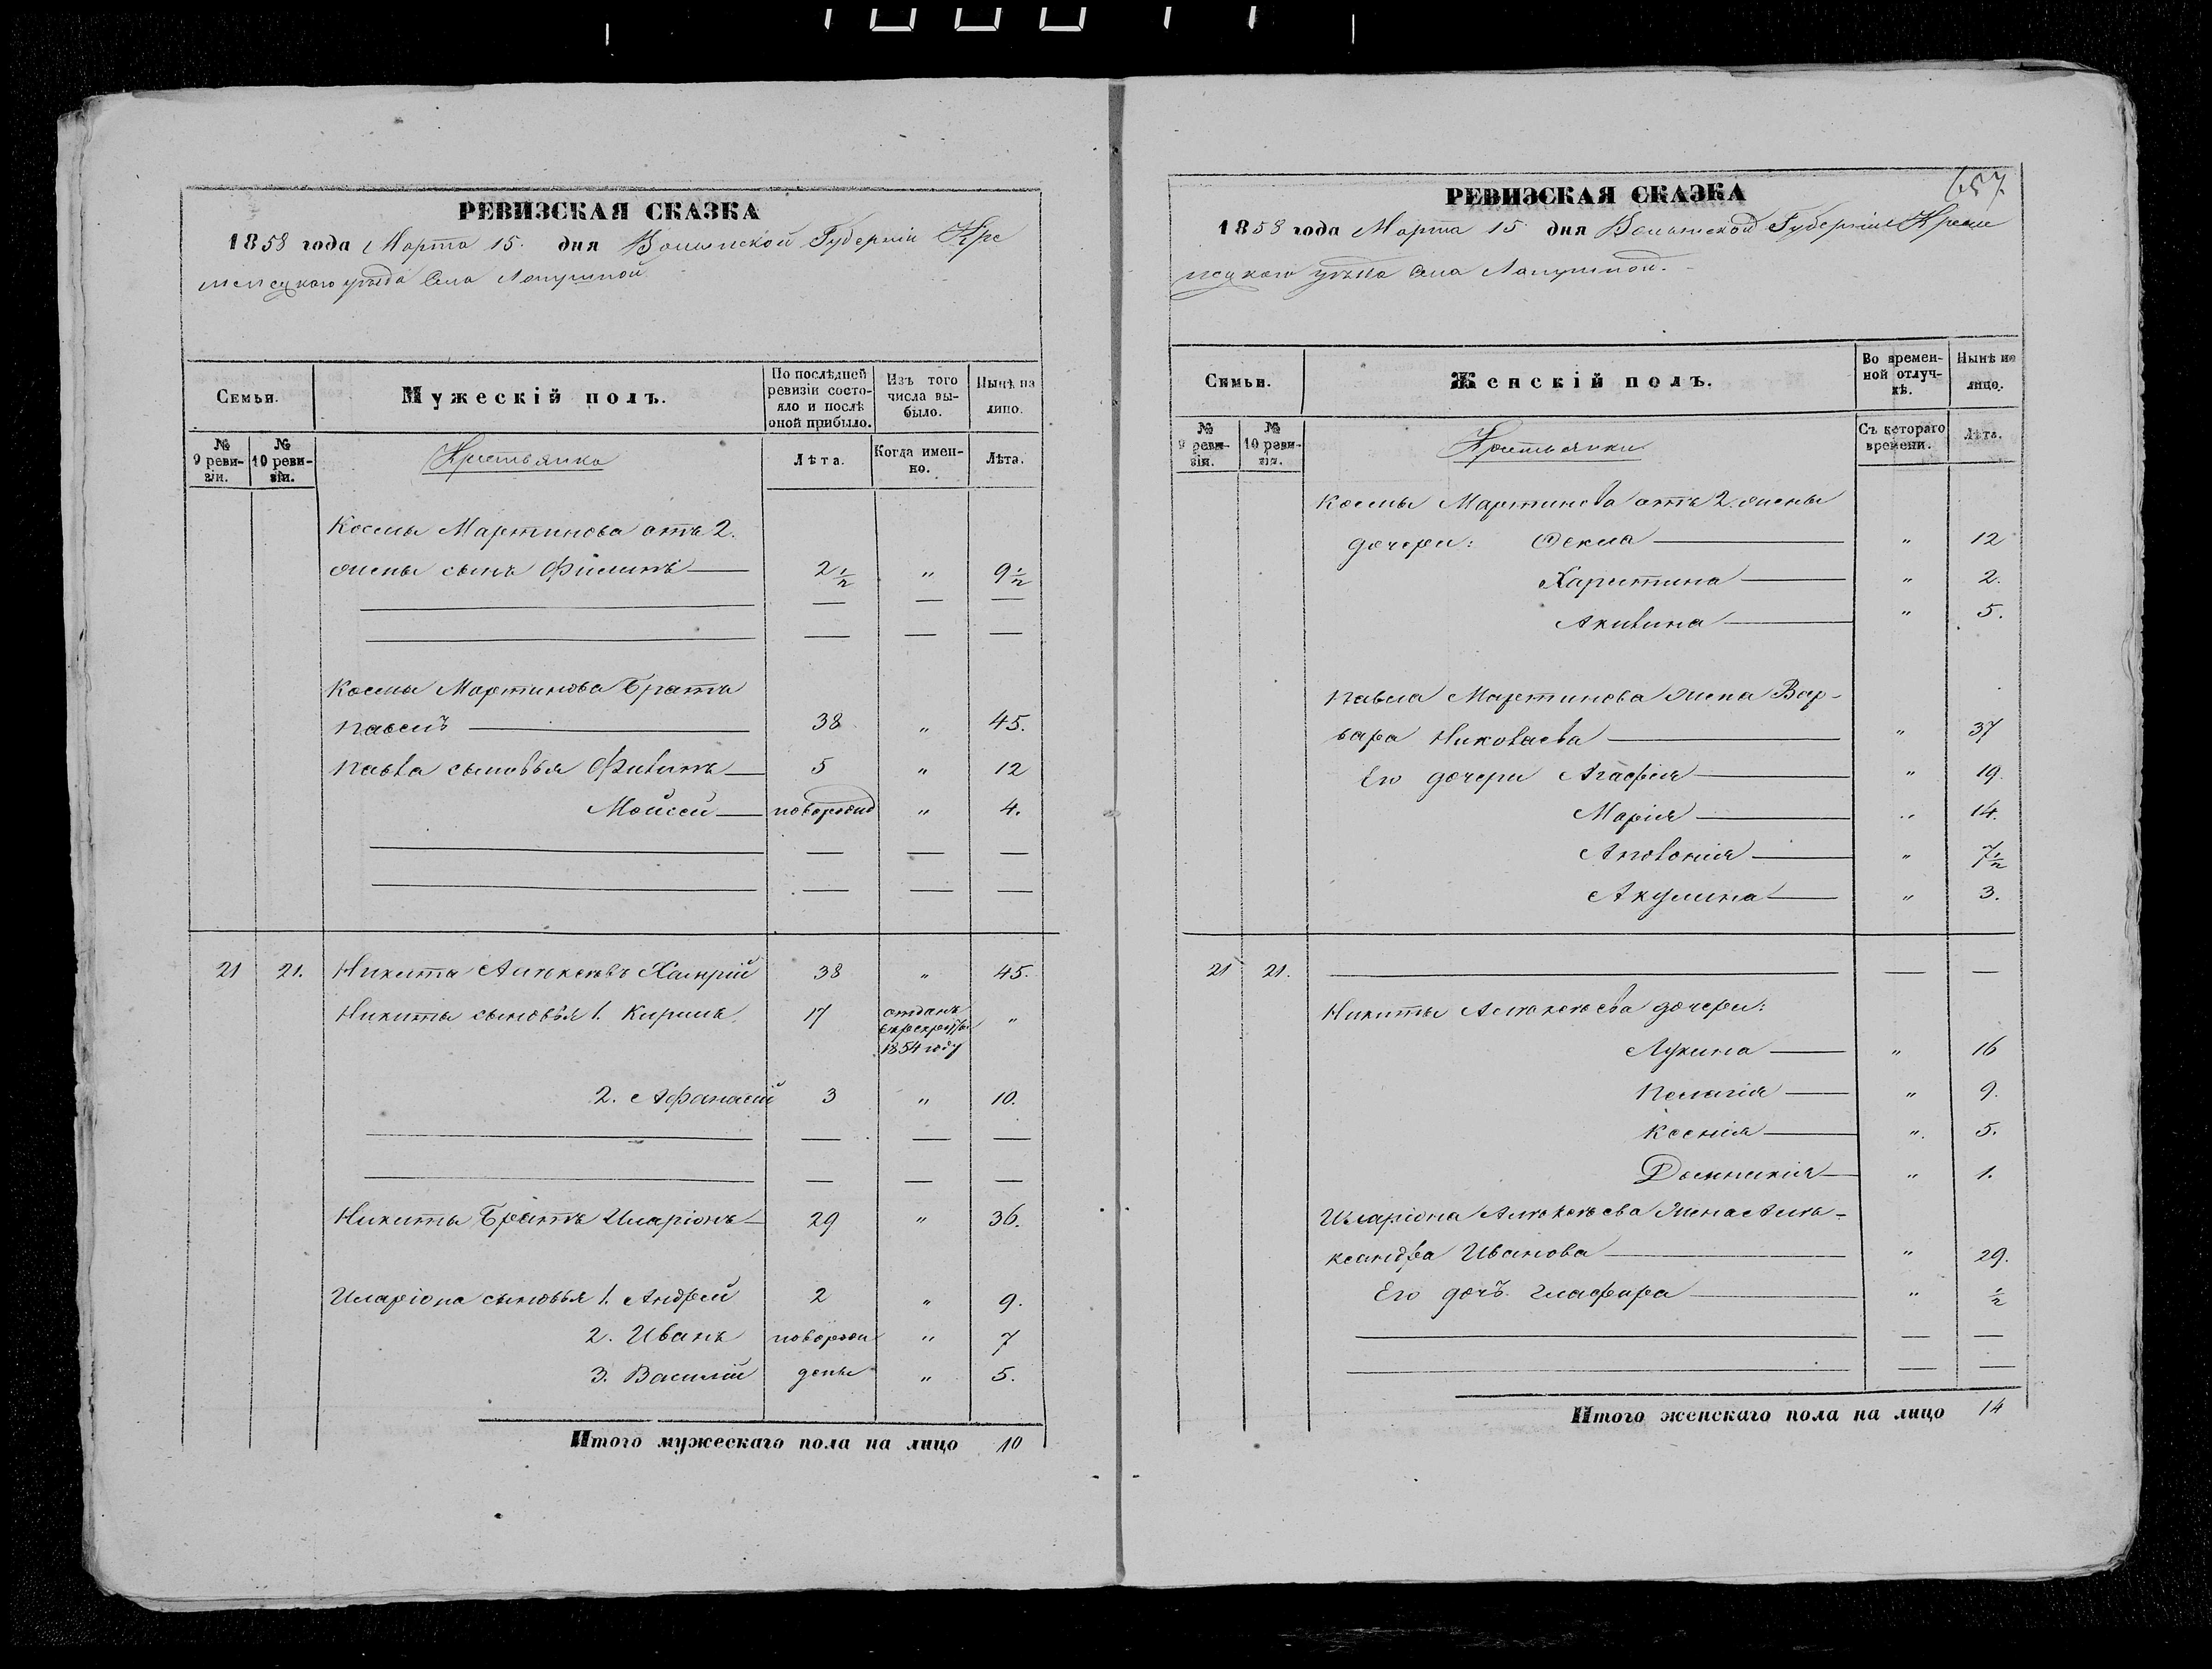 РЕВИЗСКАЯ СКАЗКА
1858 года Марта 15. дня Волынской Губерніи Кре
менецкаго уѣзда Села Лопушной
Семьи.
Мужескій полъ.
По послѣдней ревизіи состояло и послѣ оной прибыло.
Изъ того числа выбыло.
Нынѣ на лицо.
№ 9 ревизіи.
№ 10 ревизіи.
Крестьянко
Лѣта.
Когда именно.
Лѣта.
Космы Мартинова отъ 2.
жены сынъ Филипъ 2½ " 9½
Космы Мартинова Братъ
Павелъ 38 " 45.
Павла сыновья Филипъ 5 " 12
Мойсей новорожд " 4.
21 21. Никита Алексѣевъ 38 " 45.
Никиты сыновья 1. Кирилъ 17 отданъ
1854 году "
2. Афанасій 3 " 10.
Никиты Братъ Иларіонъ 29 " 36.
Иларіона сыновья 1. Андрей 2 " 9.
2. Иванъ новорож " 7
3. Василій дены " 5.
Итого мужескаго пола на лицо 10
687.
РЕВИЗСКАЯ СКАЗКА
1858 года Марта 15 дня Волынской Губерніи Креме
нецкаго уѣзда Села Лопушной.
Семьи.
Женскій полъ.
Во временной отлучкѣ.
Нынѣ на лицо.
№ 9 ревизіи.
№ 10 ревизіи.
Крестьянки
Съ котораго времени.
Лѣта.
Космы Мартинова отъ 2. жены
дочери: Фекла " 12
Харитина " 2.
Акилина " 5.
Павла Мартинова жена Вар-
вара Николаева " 37
Его дочери Агафія " 19.
Марія " 14.
Аполонія " 7½
Акулина " 3.
21 21.
Никиты Алексѣева дочери:
Лукина " 16
Пелагія " 9.
Ксенія " 5.
Домникія " 1.
Иларіона Алексѣева жена Але-
ксандра Иванова " 29.
Его дочь Глафира " ½
Итого женскаго пола на лицо 14